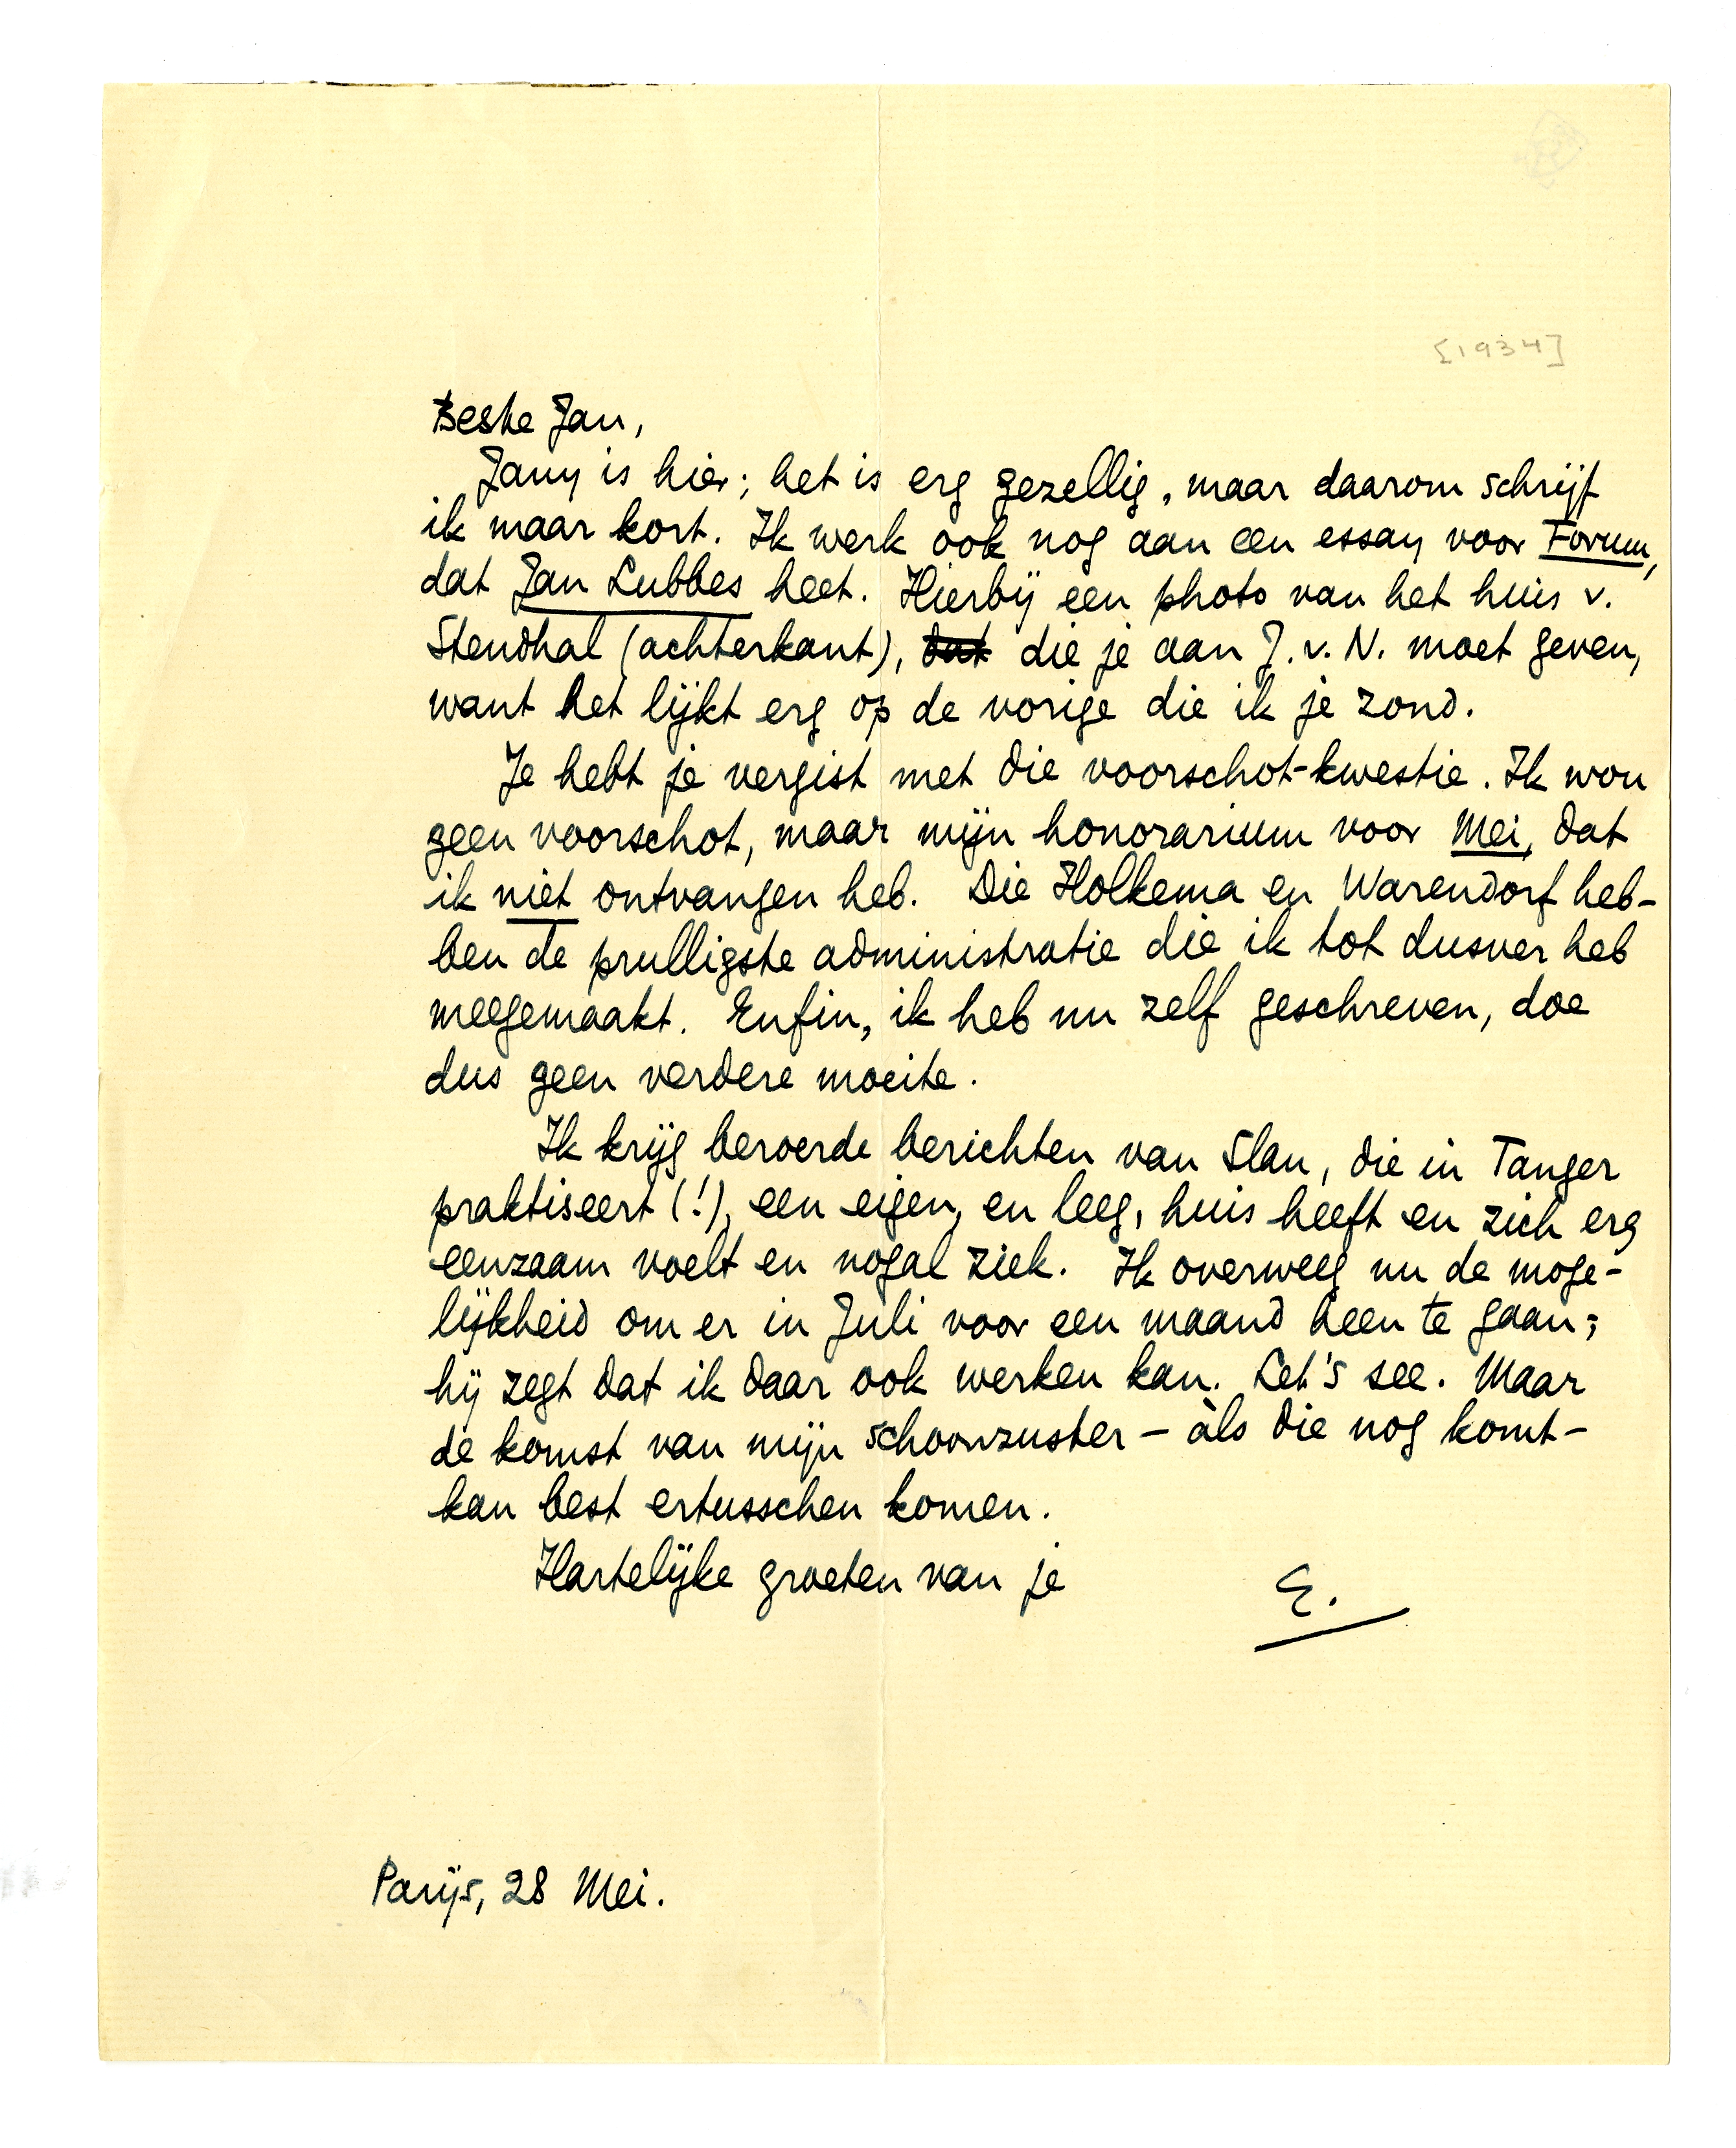 [1934]
Beste Jan,
Jany is hier; het is erg gezellig, maar daarom schrijf
ik maar kort. Ik werk ook nog aan een essay voor Forum,
dat Jan Lubbes heet. Hierbij een photo van het huis v.
Stendhal (achterkant), dat die je aan J. v. N. moet geven,
want het lijkt erg op de vorige die ik je zond.
Je hebt je vergist met die voorschot-kwestie. Ik wou
geen voorschot, maar mijn honorarium voor Mei, dat
ik niet ontvangen heb. Die Holkema en Warendorf heb-
ben de prulligste administratie die ik tot dusver heb
meegemaakt. Enfin, ik heb nu zelf geschreven, doe
dus geen verdere moeite.
Ik krijg beroerde berichten van Slau, die in Tanger
praktiseert (!), een eigen, en leeg, huis heeft en zich erg
eenzaam voelt en nogal ziek. Ik overweeg nu de moge-
lijkheid om er in Juli voor een maand heen te gaan;
hij zegt dat ik daar ook werken kan. Let's see. Maar
de komst van mijn schoonzuster – àls die nog komt –
kan best ertusschen komen.
Hartelijke groeten van je
E.
Parijs, 28 Mei.